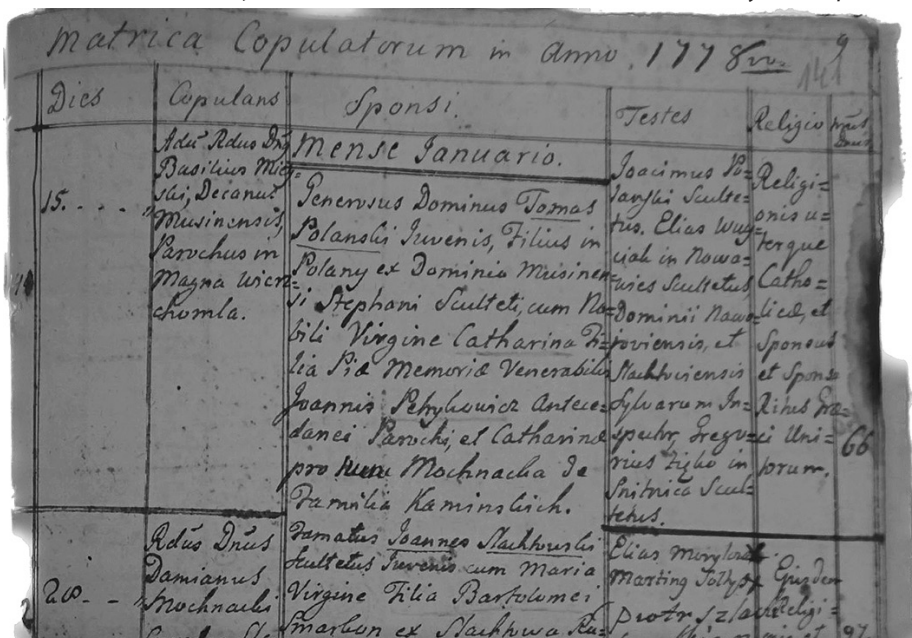 Matrica Copulatorum in Anno 1778
Dies
Copulans
Sponsi.
Testes
Religio
Mense Januario.
15.
Basilius
ski, Decanus
Musinensis,
Parochus in
Magna Wier=
chomla.
Generosus Dominus Tomas
Polanski Iuvenis, Filius in
Polany ex Dominio Musinen=
si Stephani Sculteti, cum No=
bili Virgine Catharina Fi=
lia Piæ Memoriæ Venerabilis
Joannis Petrykowicz Antece=
danei Parochi, et Catharinæ
pro Mochnacka de
Familia Kaminskich.
Joacimus Po=
lanski Sculte=
tus, Elias
in Nowa=
wies Scultetus
Dominii Nawo=
joviensis, et
Sylvarum In=
spektr, Grego=
rius in
Snitnica Scul=
tetus.
Religi=
onis u=
terque
Catho=
licæ, et
Sponsus
et Sponsa
Ritus Græ=
ci Uni=
torum.
66
28.
Rdus Dnus
Damianus
Mochnacki
Famatus Joannes Slachtowski
Scultetus Iuvenis cum Maria
Virgine Filia Bartolomei
ex Slachtowa
Elias
Piotr